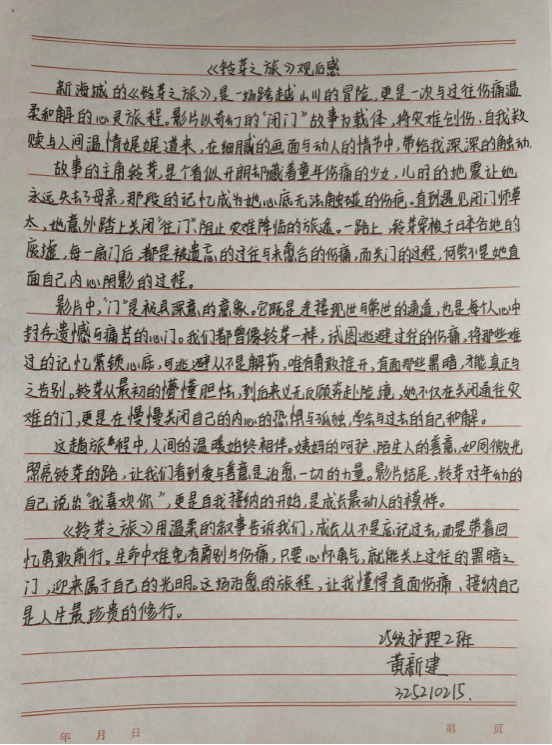 《铃芽之旅》观后感
新海诚的《铃芽之旅》,是一场跨越山川的冒险,更是一次与过往伤痛温
柔和解的心灵旅程。影片以奇幻的“闭门”故事为载体,将灾难创伤、自我救
赎与人间温情娓娓道来,在细腻的画面与动人的情节中,带给我深深的触动.
故事的主角铃芽,是个看似开朗却藏着童年伤痛的少女,儿时的地震让她
永远失去了母亲,那段的记忆成为她心底无法触碰的伤疤。直到遇见闭门师草
太,她意外踏上关闭“往门”、阻止灾难降临的旅途。一路上,铃芽穿梭于日本各地的
废墟,每一扇门后,都是被遗忘的过往与未愈合的伤痛,而关门的过程,何尝不是她直
面自己内心阴影的过程。
影片中,“门”是极具深意的意象。它既是连接现世与常世的通道,也是每个人心中
封存遗憾与痛苦的心门。我们都曾像铃芽一样,试图逃避过往的伤痛,将那些难
过的记忆紧锁心底,可逃避从不是解药,唯有勇敢推开,直面那些黑暗,才能真正与
之告别。铃芽从最初的懵懂胆怯,到后来义无反顾奔赴险境,她不仅在关闭通往灾
难的门,更是在慢慢关闭自己的内心的恐惧与孤独,学会与过去的自己和解。
这趟旅程中,人间的温暖始终相伴。姨妈的呵护、陌生人的善意,如同微光
照亮铃芽的路,让我们看到爱与善意是治愈一切的力量。影片结尾,铃芽对年幼的
自己说出“我喜欢你”,更是自我接纳的开始,是成长最动人的模样。
《铃芽之旅》用温柔的叙事告诉我们,成长从不是忘记过去,而是带着回
忆勇敢前行。生命中难免有离别与伤痛,只要心怀勇气,就能关上过往的黑暗之
门,迎来属于自己的光明。这场治愈的旅程,让我懂得直面伤痛、接纳自己
是人生最珍贵的修行。
25级护理2班
黄新建
325210215.
年 月 日 第 页